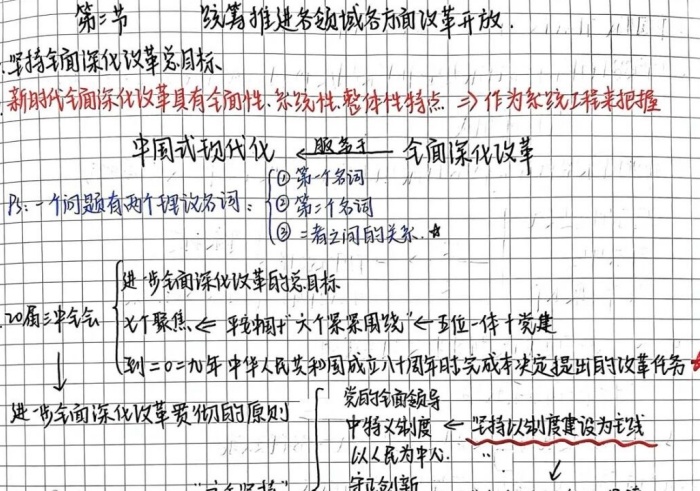 第二节 统筹推进各领域各方面改革开放.
坚持全面深化改革总目标
新时代全面深化改革具有全面性、系统性、整体性特点 ⇒ 作为系统工程来把握
中国式现代化 ←服务于— 全面深化改革
Ps: 一个问题有两个理论名词:
① 第一个名词
② 第二个名词
③ 二者之间的关系.☆
进一步全面深化改革的总目标
20届三中全会
七个聚焦 ⇐ "六个紧紧围绕" ← 五位一体+党建
到二〇二九年中华人民共和国成立八十周年时完成本决定提出的改革任务
进一步全面深化改革贯彻的原则
党的全面领导
中特义制度 ← 坚持以制度建设为主线
以人民为中心.
守正创新